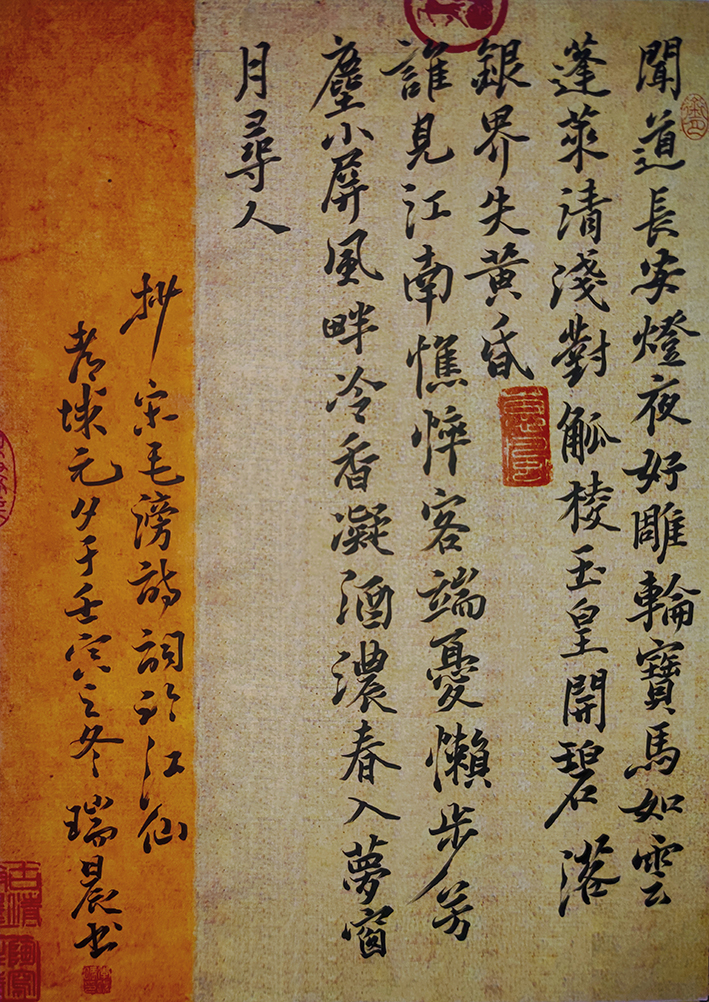 聞道長安燈夜好雕輪寶馬如雲
蓬萊清淺對觚棱玉皇開碧落
銀界失黃昏
誰見江南憔悴客端憂懶步芳
塵小屏風畔冷香凝酒濃春入夢窗
月尋人
抄宋毛滂詩詞臨江仙
都城元夕于壬寅之冬瑞晨書